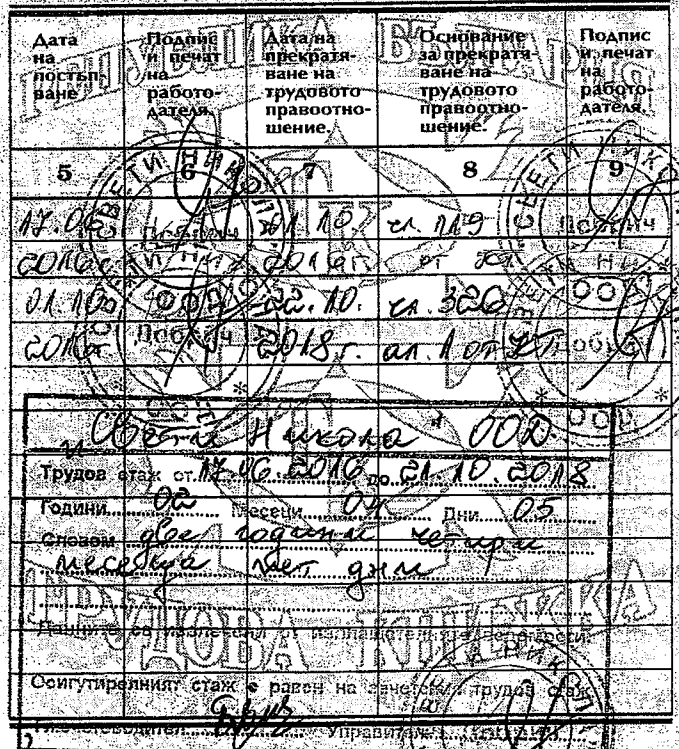 Дата на постъп-ване
Подпис и печат на работо-дателя.
Дата на прекратя-ване на трудовото правоотно-шение.
Основание за прекратя-ване на трудовото правоотно-шение.
Подпис и печат на работо-дателя.
5 6 7 8 9
17.06 01.10. чл. 119
2016г. 2016г. от
01.10. 22.10. чл. 326
2016г. 2018г. ал. 1 от КТ
"Свети Никола" ООД
Трудов стаж от 17.06.2016 до 21.10.2018
Години 02 Месеци 04 Дни 05
Словом две години четири
месеца пет дни
Данните са извлечени от изплащателните ведомости
Осигурителният стаж е равен на зачетения трудов стаж
Управител
ТРУДОВА КНИЖКА